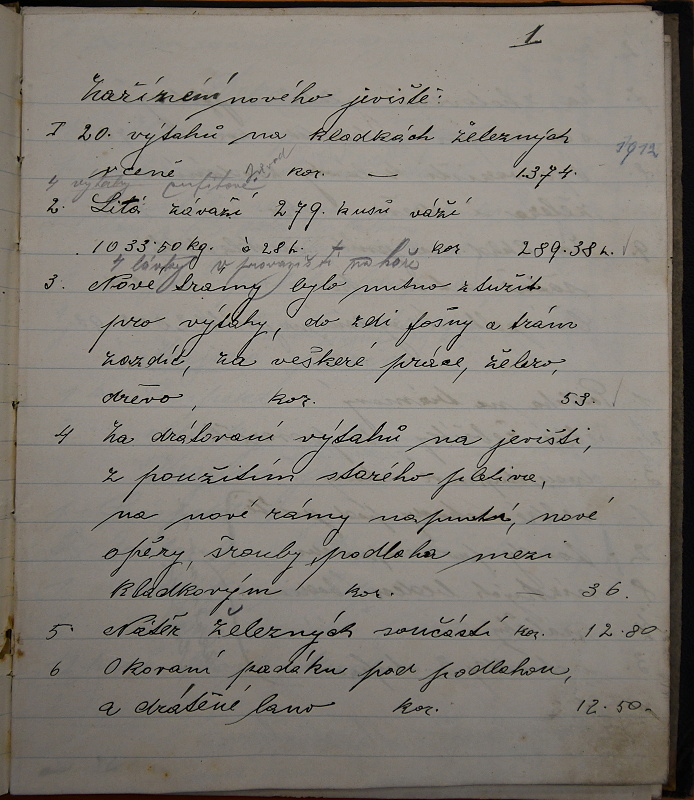 1
Zařízení nového jeviště:
I 20. výtahů na kladkách železných
1912
včeně kor. — 1.374.
4 výtahy
2. Litá závaží 279. kusů váží
1033·50 kg. à 28 h. kor 289·38 h.
4 lávky v provazišti na hoře
3. Nové tramy bylo nutno ztužit
pro výtahy, do zdi fošny a trám
zazdíc, za veškeré práce, železo,
dřevo, kor. 53.
4 Za drátovaní výtahů na jevišti,
z použitím starého pletiva,
na nové rámy napnutí, nové
opěry, šrouby, podlaha mezi
kladkovým kor. — 36.
5 Nátěr železných součástí kor. 12·80
6 Okovaní padáku pod podlahou,
a drátěné lano kor. 12·50-